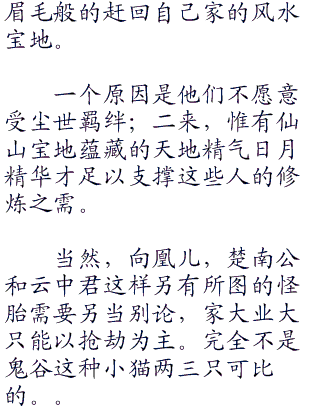 眉毛般的赶回自己家的风水
宝地。
一个原因是他们不愿意
受尘世羁绊；二来，惟有仙
山宝地蕴藏的天地精气日月
精华才足以支撑这些人的修
炼之需。
当然，向凰儿，楚南公
和云中君这样另有所图的怪
胎需要另当别论，家大业大
只能以抢劫为主。完全不是
鬼谷这种小猫两三只可比
的。。